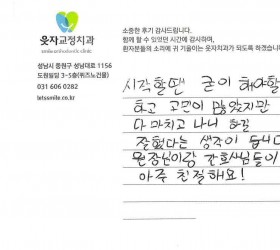 웃자교정치과
성남시 중원구 성남대로 1156
도원빌딩 3~5층(위즈노건물)
031 606 0282
letssmile.co.kr
소중한 후기 감사드립니다.
함께 할 수 있었던 시간에 감사하며,
환자분들의 소리에 귀 기울이는 웃자치과가 되도록 하겠습니
시작할땐 굳이 해야할
하고 고민이 많았지만
다 마치고 나니 하길
잘했다는 생각이 듭니다
원장님이랑 간호사님들이
아주 친절해요!